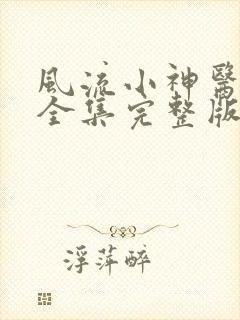 風流小神醫
全集完整版
浮萍醉